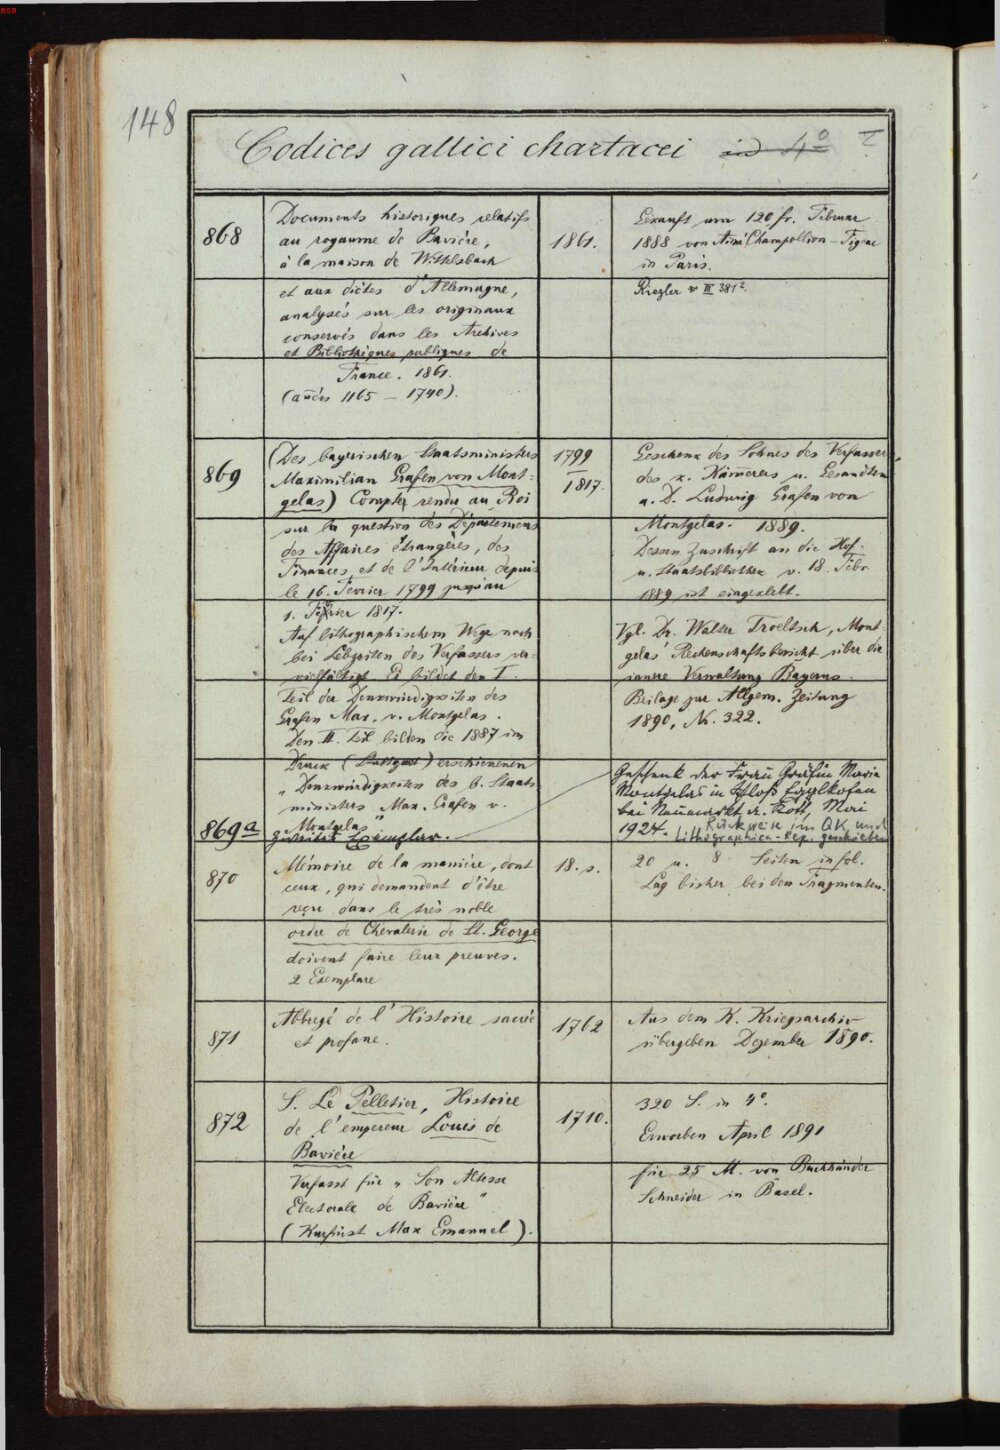 148
Codices gallici chartacei in 4º
868
Documents historiques relatifs
au royaume de Bavière,
à la maison de Witthlsbach
et aux diètes d'Allemagne,
analysés sur les originaux
conservés dans les Archives
et Bibliothèques publiques de
France. 1861.
(años 1165 – 1740).
1861.
Gekauft um 120 fr. Februar
1888 von Aimé Champollion-Figeac
in Paris.
Riezler III 381².
869
(Des bayerischen Staatsministers
Maximilian Grafen von Mont-
gelas) Compte rendu au Roi
sur la question des Départemens
des Affaires étrangères, des
Finances et de l'Intérieur depuis
le 16. Fevrier 1799 jusqu'au
1. Février 1817.
Auf lithographischem Wege noch
bei Lebzeiten des Verfassers ver-
vielfältigt. Es bildet den I.
Teil der Denkwürdigkeiten des
Grafen Max. v. Montgelas.
Den II. Teil bilden die 1887 im
Druck (Stuttgart) erschienenen
„Denkwürdigkeiten des b. Staats-
ministers Max. Grafen v.
Montgelas"
1799
1817.
Geschenk des Sohnes des Verfassers,
des k. Kämerers u. Gesandten
a. D. Ludwig Grafen von
Montgelas. 1889.
Dessen Zuschrift an die Hof-
u. Staatsbibliothek v. 18. Febr.
1889 ist eingeklebt.
Vgl. Dr. Walter Troeltsch, Mont-
gelas' Rechenschaftsbericht über die
innere Verwaltung Bayerns.
Beilage zur Allgem. Zeitung
1890, Nr. 322.
869a
zweites Exemplar.
Geschenk der Frau Gräfin Maria
Montgelas in Schloß Egglkofen
bei Neumarkt a. Rott, Mai
1924. Rückweise im QK und
Lithographica-Rep. geschrieben
870
Mémoire de la manière, dont
ceux, qui demandent d'être
reçu dans le très noble
ordre de Chevalerie de St. George
doivent faire leur preuves.
2 Exemplare
18. s.
20 u. 8 Seiten in fol.
Lag bisher bei den Fragmenten.
871
Abbregé de l'Histoire sacrée
et profane.
1762
Aus dem K. Kriegsarchiv
übergeben Dezember 1890.
872
S. Le Pelletier, Histoire
de l'empereur Louis de
Bavière
Verfasst für „Son Altesse
Electorale de Bavière"
(Kurfürst Max Emanuel).
1710.
320 S. in 4º.
Erworben April 1891
für 25 M. von Buchhändler
Schneider in Basel.